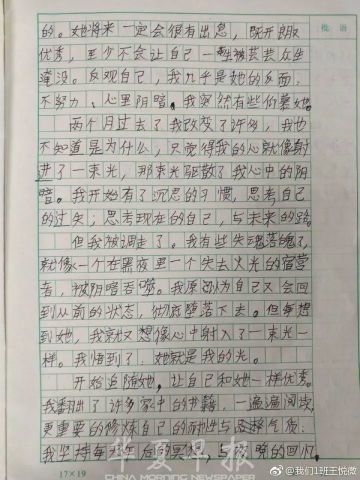 批语
的。她将来一定会很有出息，既开朗又
优秀，至少不会让自己一生被芸芸众生
淹没。反观自己，我几乎是她的反面：
不努力、心里阴暗。我突然有些仰慕她。
两个月过去了我改变了许多，我也
不知道是为什么，只觉得我的心就像射
进了一束光，那束光驱散了我心中的阴
暗。我开始有了沉思的习惯，思考自己
的过失；思考现在的自己，与未来的路。
但我被调走了。我有些失魂落魄了，
就像一个在黑夜里一个失去火光的宿营
者，被阴暗吞噬。我原以为自己又会回
到从前的状态，彻底堕落下去。但每想
到她，我就又想像心中射入了一束光一
样。我悟到了，她就是我的光。
开始追随她，让自己和她一样优秀。
我翻出了许多家中的书籍，一遍遍阅读，
更重要的修炼自己的耐性与思格气质。
我坚持每天午后的冥想，与夜晚的回忆，
17×19
华夏早报
CHINA MORNING NEWSPAPER
@我们1班王悦微